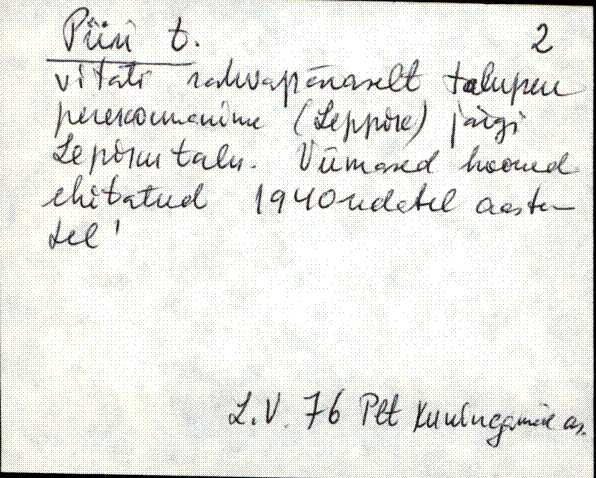 Piiri t. 2
viitati rahvapäraselt taluperе
perekonnanime (Leppik) järgi
Lepiku talu. Viimased hooned
ehitatud 1940-ndatel aasta-
tel!
L.V. 76 Plt Kuningamäe as.